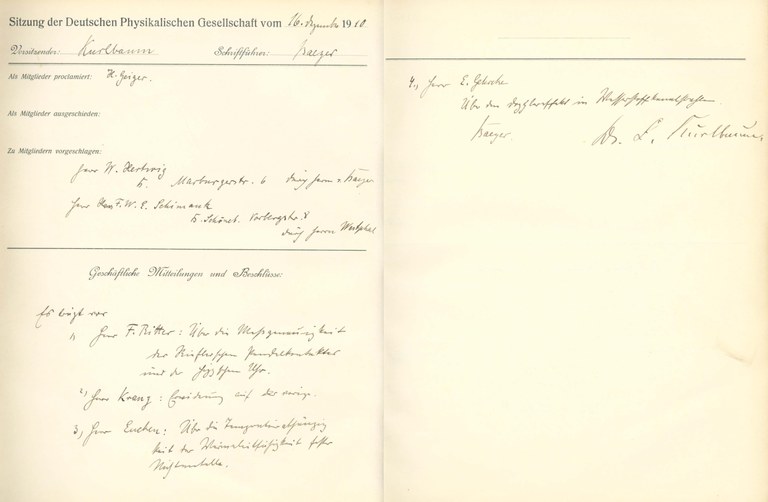 Sitzung der Deutschen Physikalischen Gesellschaft vom 16. Dezember 1910.
Vorsitzender: Kurlbaum Schriftführer: Kaeger
Als Mitglieder proclamiert: H. Geiger.
Als Mitglieder ausgeschieden:
Zu Mitgliedern vorgeschlagen:
Herr W. Hertwig
Marburgerstr. 6 durch Herrn
Herr F. W. E. Schimank
B. Schönebg. Vorbergstr. 8
durch Herrn Westphal
Geschäftliche Mitteilungen und Beschlüsse:
Es liegt vor
1) Herr F. Ritter: Über die Meßgenauigkeit
der Rieflerschen Pendelkontakte
und der Uhr.
2) Herr Kranz: Erwiderung auf das vorige.
3) Herr Eucken: Über die Temperaturabhängig
keit der Wärmeleitfähigkeit fester
Nichtmetalle.
4) Herr E. Gehrcke
Über den Dopplereffekt in Wasserstoffkanalstrahlen.
Kaeger. Dr. F. Kurlbaum